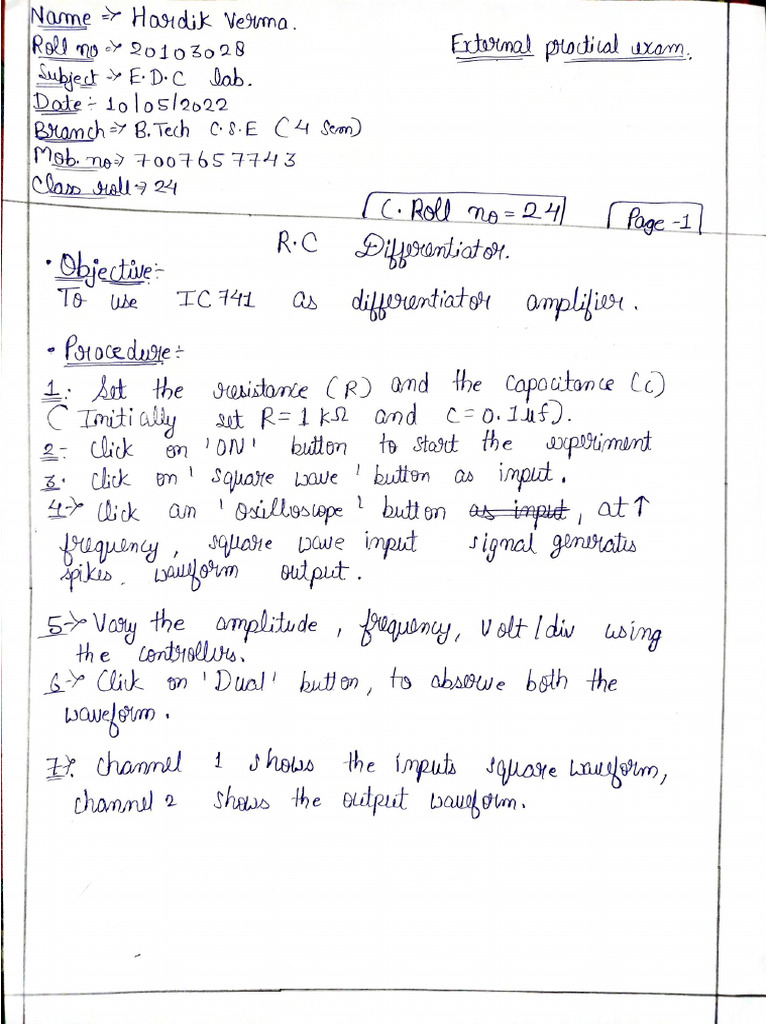 Name => Hardik Verma.
Roll no => 20103028
External practical exam.
Subject -> E.D.C lab.
Date :- 10/05/2022
Branch => B.Tech C.S.E (4 Sem)
Mob. no => 7007657743
Class roll -> 24
C. Roll no = 24
Page -1
R.C Differentiator.
• Objective:-
To use IC 741 as differentiator amplifier.
• Procedure:-
1: Set the resistance (R) and the capacitance (C)
( Initially set R = 1 kΩ and C = 0.1uf).
2:- Click on 'ON' button to start the experiment
3. Click on 'square wave' button as input.
4-> Click an 'Osilloscope' button as input, at ↑
frequency, square wave input signal generates
spikes. waveform output.
5-> Vary the amplitude, frequency, Volt/div using
the controllers.
6-> Click on 'Dual' button, to observe both the
waveform.
7:- Channel 1 shows the inputs square waveform,
channel 2 shows the output waveform.